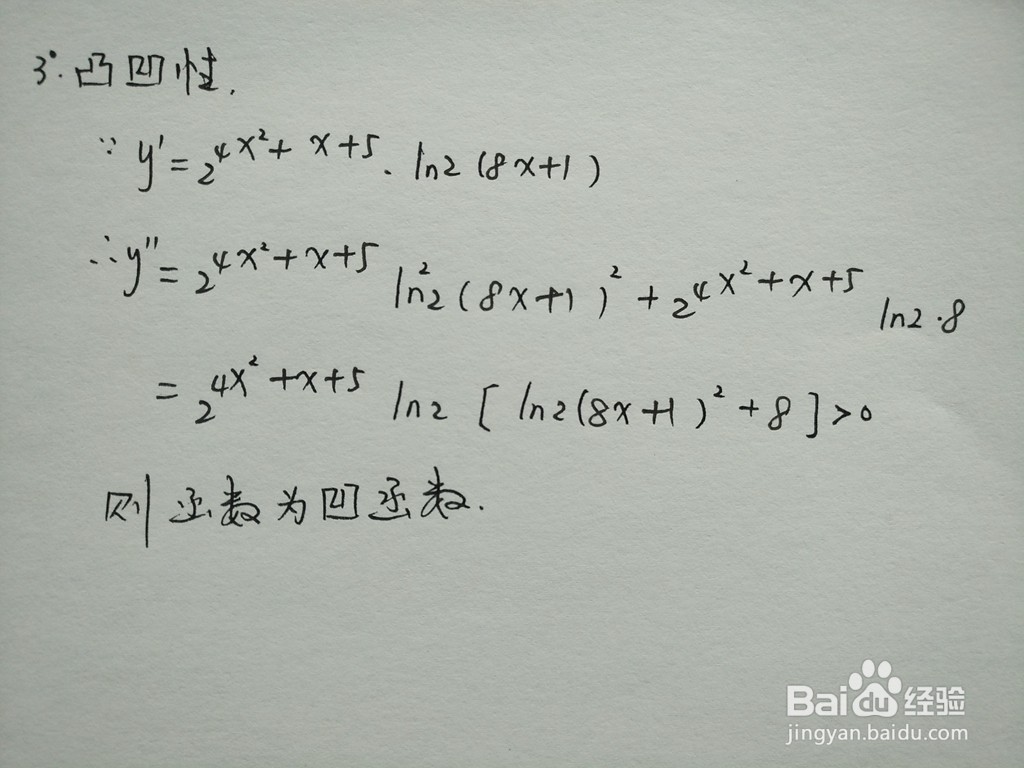 3°.凸凹性.
∵ y'=2^{4x²+x+5}·ln2(8x+1)
∴y''=2^{4x²+x+5} ln²2(8x+1)²+2^{4x²+x+5} ln2·8
=2^{4x²+x+5} ln2[ln2(8x+1)²+8]>0
则函数为凹函数.
Baidu经验
jingyan.baidu.com